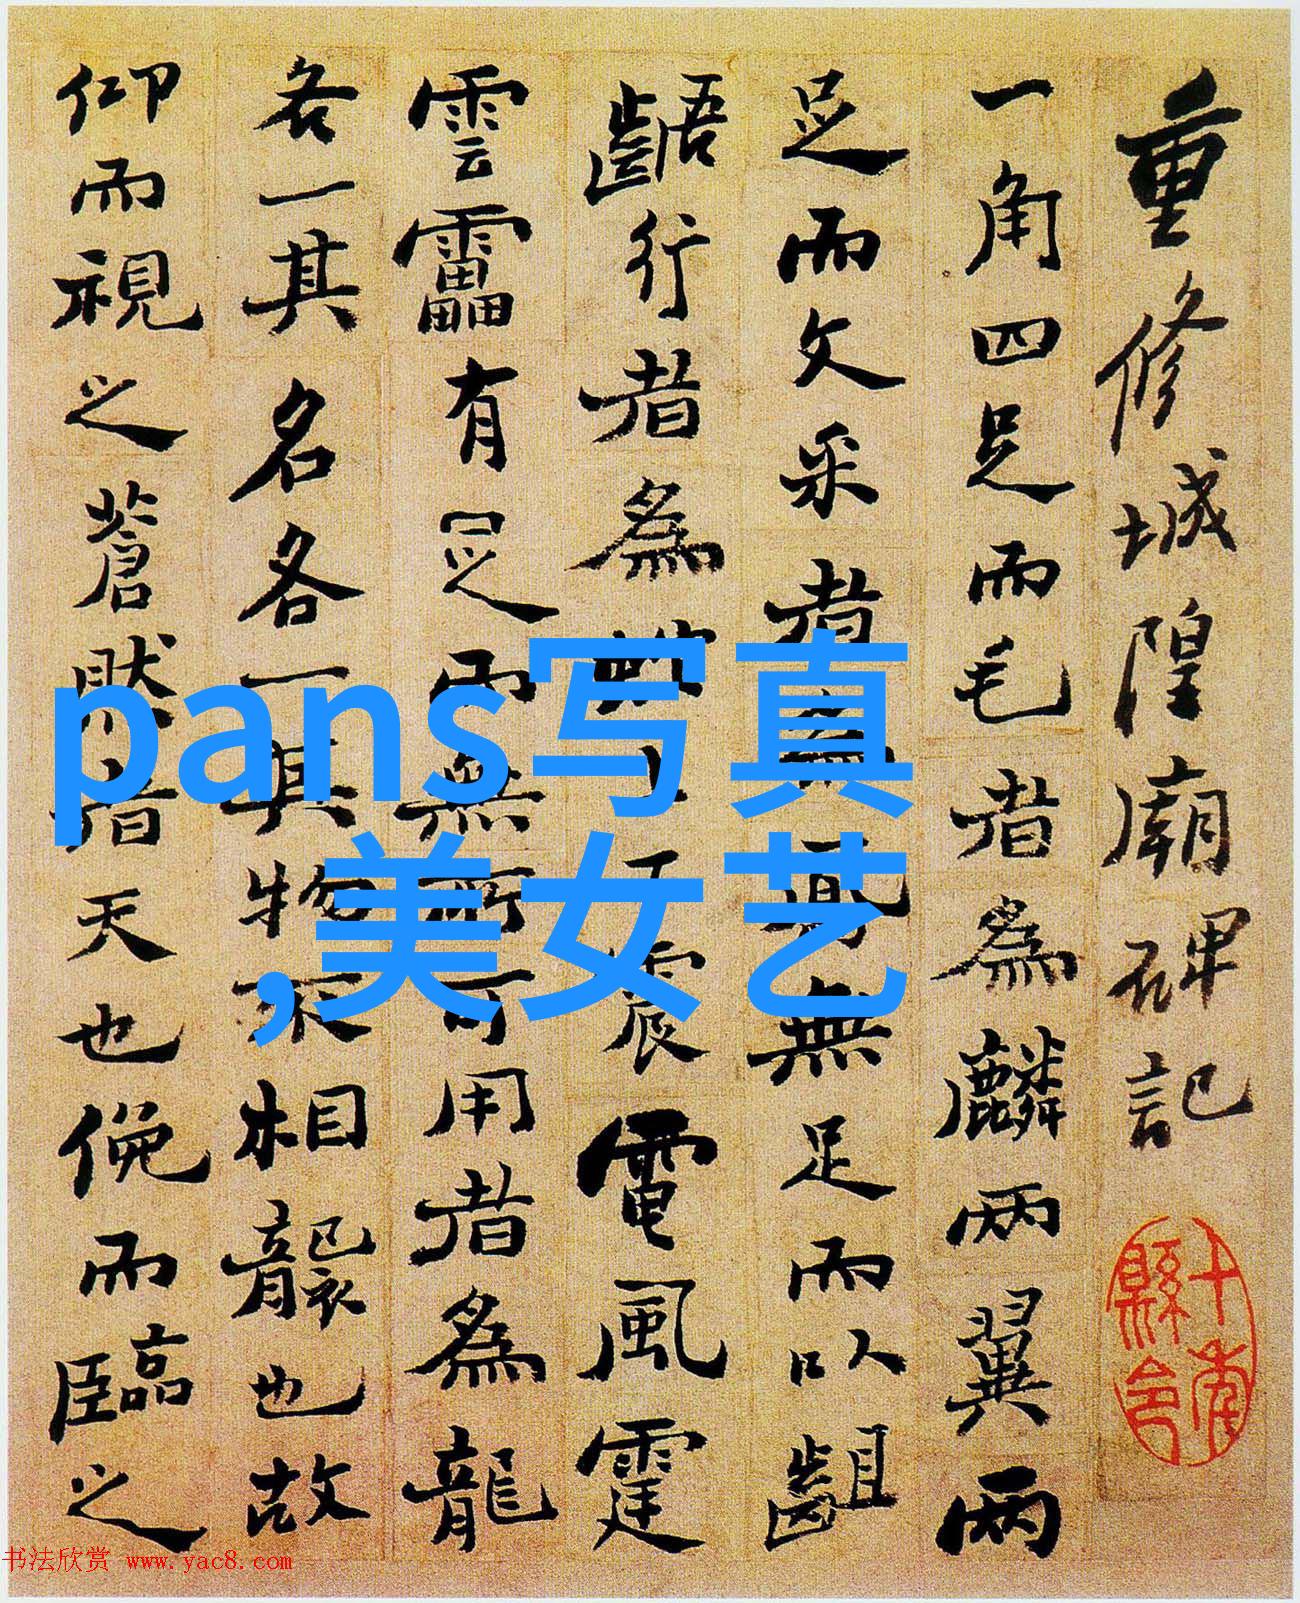 重修城隍廟碑記
一角四足而毛者為麟兩翼兩
足而文采者為鳳無足而以齟
齬行者為蛇上下震電風霆
雲靁有足而無所可用者為龍
各一其名各一其物不相襲也故
仰而視之蒼然者天也俛而臨之
pans写真
,美女艺
书法欣赏 www.yac8.com